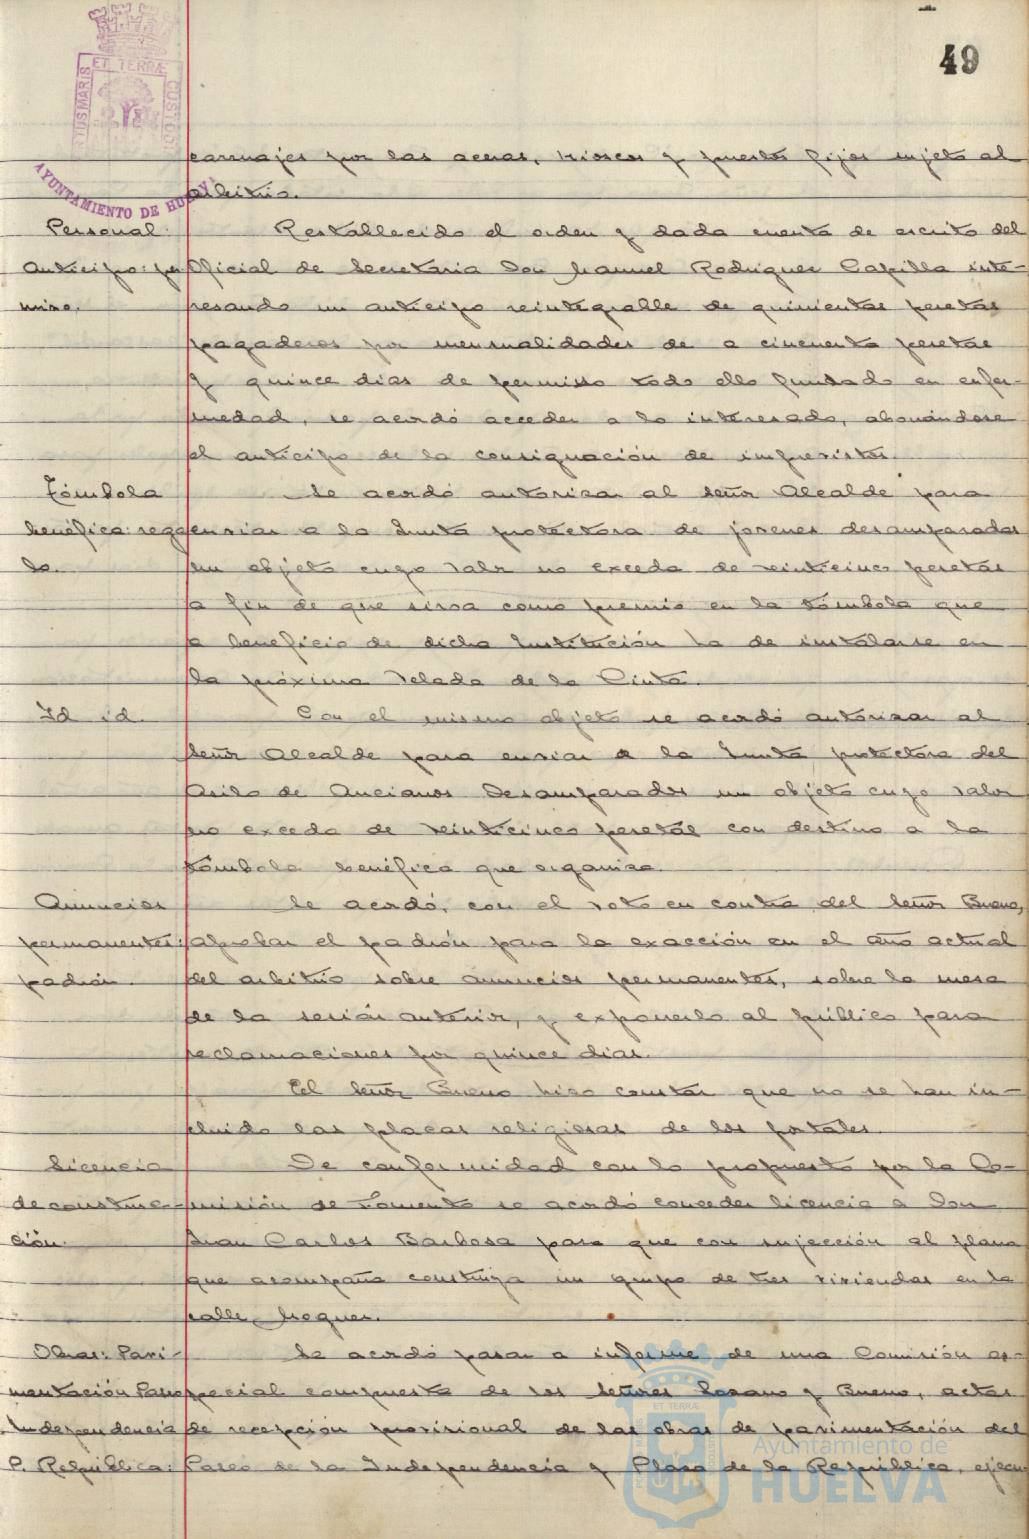 49
ET TERRÆ
PORTUS MARIS
CUSTODIA
AYUNTAMIENTO DE HUELVA
carruajes por las aceras, kioscos y puestos fijos sujeto al
arbitrio.
Personal:
Anticipo: per
miso.
Restablecido el orden y dada cuenta de escrito del
Oficial de Secretaria Don Manuel Rodriguez Capilla inte-
resando un anticipo reintegrable de quinientas pesetas
pagaderos por mensualidades de a cincuenta pesetas
y quince dias de permiso todo ello fundado en enfer-
medad, se acordó acceder a lo interesado, abonándose
el anticipo de la consignación de imprevistos.
Tómbola
benéfica: rega
lo.
Se acordó autorizar al Señor Alcalde para
enviar a la Junta protectora de jovenes desamparadas
un objeto cuyo valor no exceda de veinticinco pesetas
a fin de que sirva como premio en la tómbola que
a beneficio de dicha Institución ha de instalarse en
la próxima Velada de la Cinta.
Id id.
Con el mismo objeto se acordó autorizar al
Señor Alcalde para enviar a la Junta protectora del
Asilo de Ancianos Desamparados un objeto cuyo valor
no exceda de veinticinco pesetas con destino a la
tómbola benéfica que organiza.
Anuncios
permanentes:
padrón.
Se acordó, con el voto en contra del Señor Bueno,
aprobar el padrón para la exacción en el año actual
del arbitrio sobre anuncios permanentes, sobre la mesa
de la sesión anterior, y exponerlo al público para
reclamaciones por quince dias.
El Señor Bueno hizo constar que no se han in-
cluido las placas religiosas de los portales.
Licencia
de construc-
ción.
De conformidad con lo propuesto por la Co-
misión de Fomento se acordó conceder licencia a Don
Juan Carlos Barbosa para que con sujección al plano
que acompaña construya un grupo de tres viviendas en la
calle Moguer.
Obras: Pavi-
mentación Paseo
Independencia
P. República:
Se acordó pasar a informe de una Comisión es-
pecial compuesta de los Señores Lozano y Bueno, actas
de recepción provisional de las obras de pavimentación del
Paseo de la Independencia y Plaza de la República, ejecu-
Ayuntamiento de
HUELVA